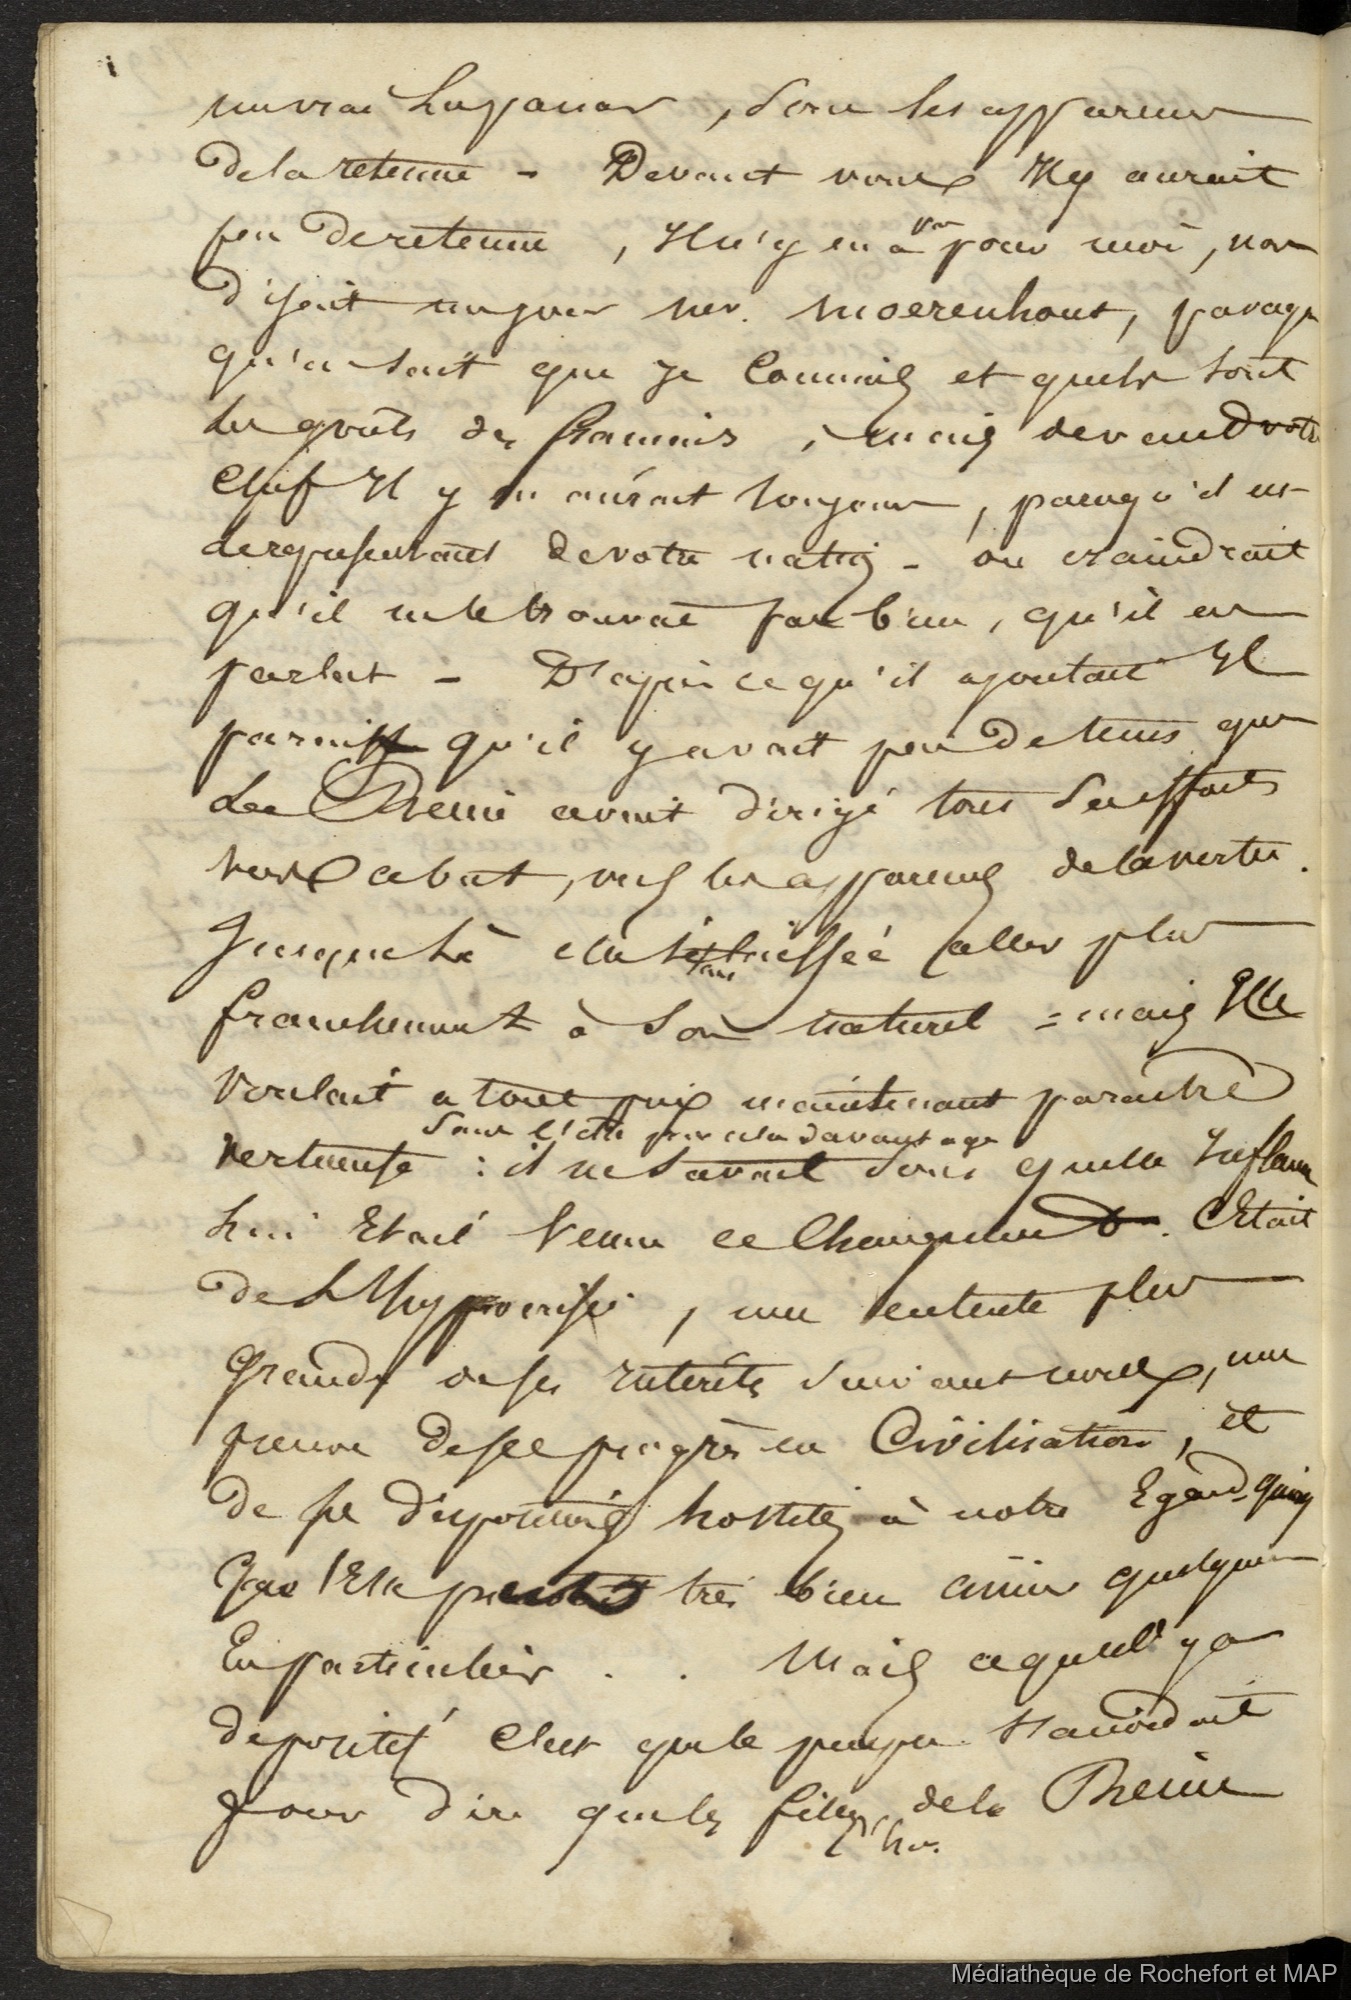 un vrai Lupanar, sous les apparences
de la retenue - Devant vous Il y aurait
peu de retenue, Il n'y en a pas pour moi, nous
disait un jour Mr. Moerenhout, parcequ
qu'on sait que je connais et quels sont
les goûts des français, mais devant votre
Chef Il y en aurait toujours, parcequ'il est
le représentant de votre nation - on craindrait
qu'il ne le trouvat pas bien, qu'il en
parlat - D'après ce qu'il ajoutait Il
parait qu'il y avait peu de tems que
La Reine avait dirigé tous ses efforts
vers ce but, vers les apparences de la vertu.
Jusque là elle s'était laissée aller plus
franchement à son naturel = mais Elle
voulait a tout prix maintenant paraitre
sans l'être pour cela davantage
vertueuse : il ne savait sous quelle Influence
lui Etait venu ce changement. C'Etait
de L'Hypocrisie, une entente plus
grande de ses intérêts suivant nous, une
preuve de ses progrès en Civilisation, et
de ses dispositions hostiles à notre Egard, quoique
par Elle très bien aimer quelques
En particulier . . Mais ce qu'il y a
de positif C'est que le peuple s'accordait
pour dire que les filles de la Reine
d'hon.
Médiathèque de Rochefort et MAP